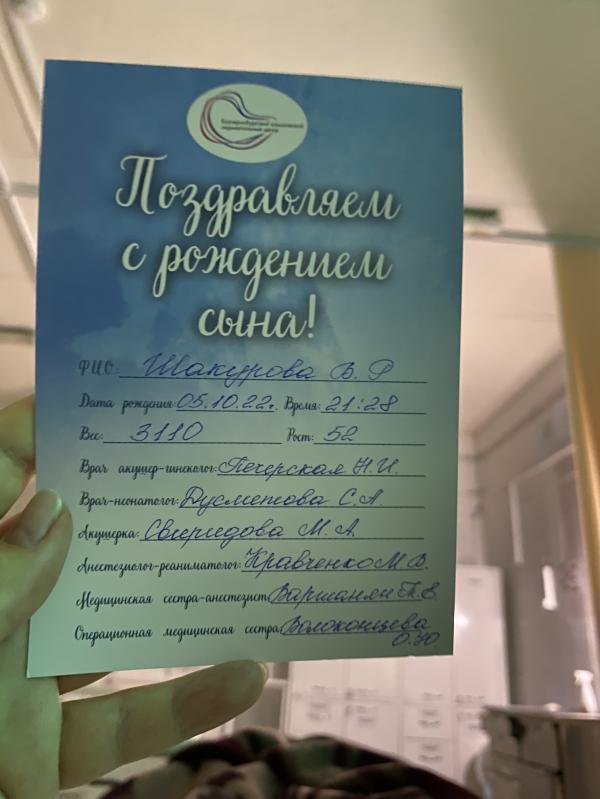 Екатеринбургский клинический
перинатальный центр
Поздравляем
с рождением
сына!
Ф.И.О.: Шакурова В. Р
Дата рождения: 05.10.22г. Время: 21:28
Вес: 3110 Рост: 52
Врач акушер-гинеколог: Печерская Н.И.
Врач-неонатолог: Дусметова С.А.
Акушерка: Свиридова М. А.
Анестезиолог-реаниматолог: Кравченко М.В.
Медицинская сестра-анестезист: Варшанян
Операционная медицинская сестра: Волоконцева
О.Ю.